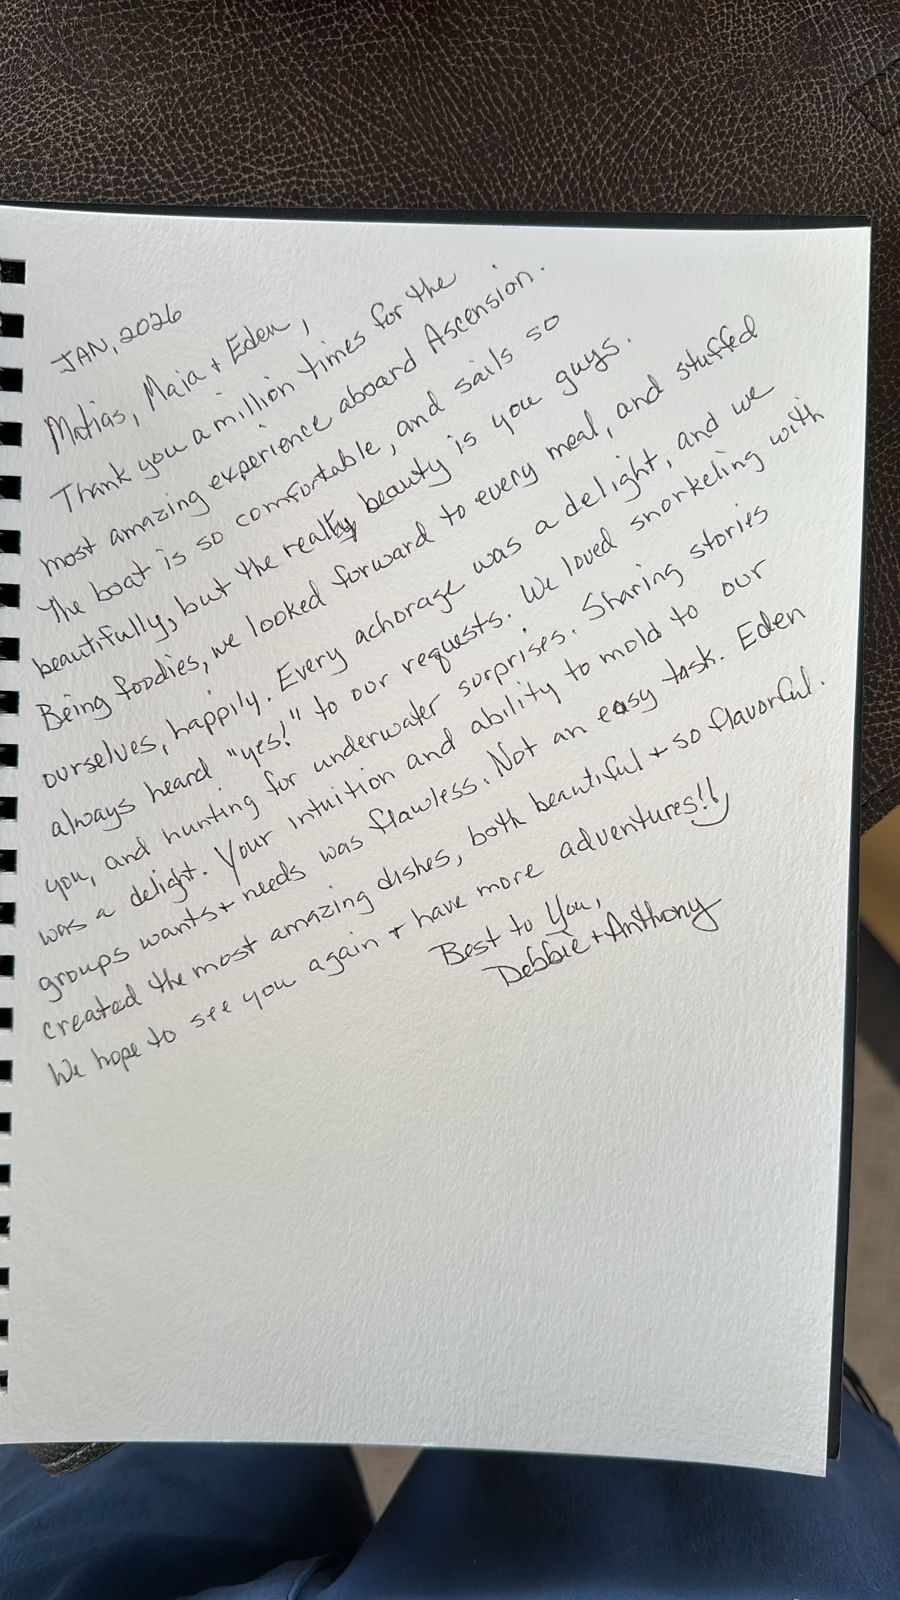 JAN, 2026
Matias, Maia + Eden,
Thank you a million times for the
most amazing experience aboard Ascension.
The boat is so comfortable, and sails so
beautifully, but the real beauty is you guys.
Being foodies, we looked forward to every meal, and stuffed
ourselves, happily. Every achorage was a delight, and we
always heard "yes!" to our requests. We loved snorkeling with
you, and hunting for underwater surprises. Sharing stories
was a delight. Your intuition and ability to mold to our
groups wants + needs was flawless. Not an easy task. Eden
created the most amazing dishes, both beautiful + so flavorful.
We hope to see you again + have more adventures!!
Best to You,
Debbie + Anthony